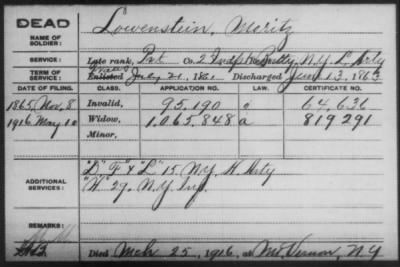 DEAD
NAME OF SOLDIER: Lowenstein, Moritz
SERVICE: Late rank, Pvt Co. 2 Indpt Batty, N.Y. L. Arty
TERM OF SERVICE: Enlisted July 21, 1861 Discharged June 13, 1863
DATE OF FILING. CLASS. APPLICATION NO. LAW. CERTIFICATE NO.
1865, Nov. 8 Invalid, 95,190 64,636
1916 May 10 Widow, 1,065,848 a 819291
Minor,
ADDITIONAL SERVICES: "D" "F" & "L" 15 N.Y. H. Arty
"H" 29. N.Y. Inf.
REMARKS:
Died Mch 25, 1916, at Mt Vernon, N.Y